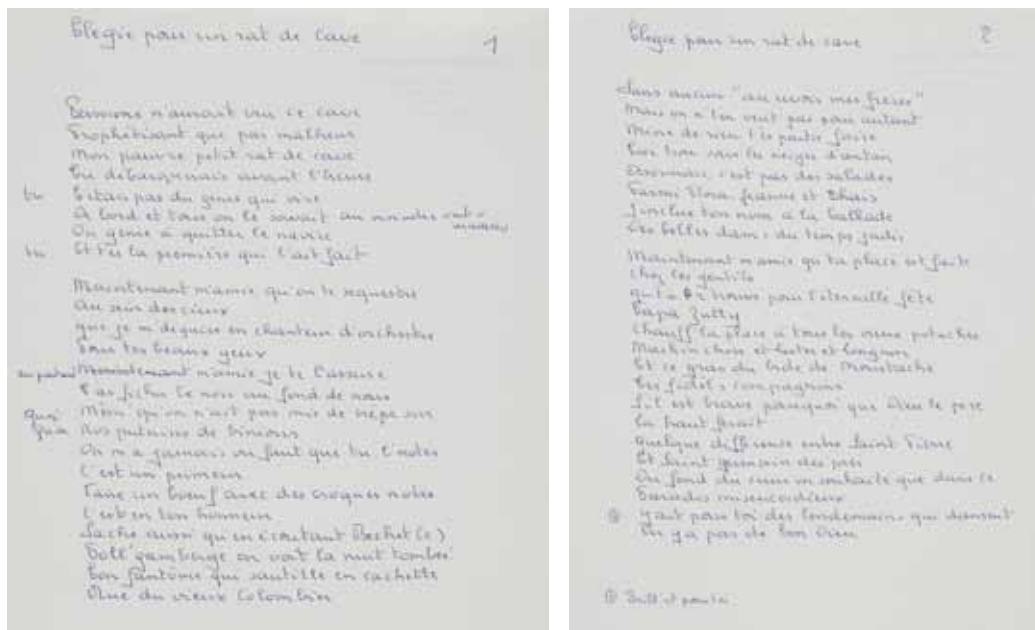 Elegie pour un rat de cave
1
Personne n'aurait cru ce cave
Prophétisant que par malheur
Mon pauvre petit rat de cave
Tu débarquerais avant l'heure
tu T'étais pas du genre qui vire
A bord et tous on le savait au moindre
On genre à quitter le navire
tu Et t'es la première qui l'ait fait
Maintenant m'amie qu'on te séquestre
Au sein des cieux
Que je m'déguise en chanteur d'orchestre
Pour tes beaux yeux
Maintenant m'amie je te l'assure
T'as fichu le noir au fond de nous
Quoi Mêm' qu'on n'ait pas mis de crêpe sur
Nos putains de binious
On m'a jamais vu faut que tu l'notes
C'est un primeur
Faire un bœuf avec des croque notes
C'est en ton honneur
Sache aussi qu'en écoutant Bechet (e)
Foll' gamberge on voit la nuit tombée
Ton fantôme qui sautille en cachette
Rue du vieux Colombier
Elegie pour un rat de cave
2
Sans aucun "au revoir mes frères"
Mais on n' t'en veut pas pour autant
Mine de rien t'es partie faire
Ton trou dans les neiges d'antan
Désormais, c'est pas des salades
Parmi Flora Jeanne et Thaïs
J'inclus ton nom à la ballade
Des belles dam's du temps jadis
Maintenant m'amie qu'ta place est faite
Chez les gentils
Qu' nous pour l'éternelle fête
Papa Zutty
Chauff' la place à tous les vieux potaches
Machin chose et
Et ce gras du bide de Moustache
Tes fidèl's compagnons
S'il est brave pourquoi que Dieu le père
Là haut ferait
Quelque différence entre Saint Pierre
Et Saint germain des prés
On fond du cœur on souhaite que dans ce
Paradis miséricordieux
Y ait pour toi des lendemains qui dansent
Où y a pas de bon Dieu